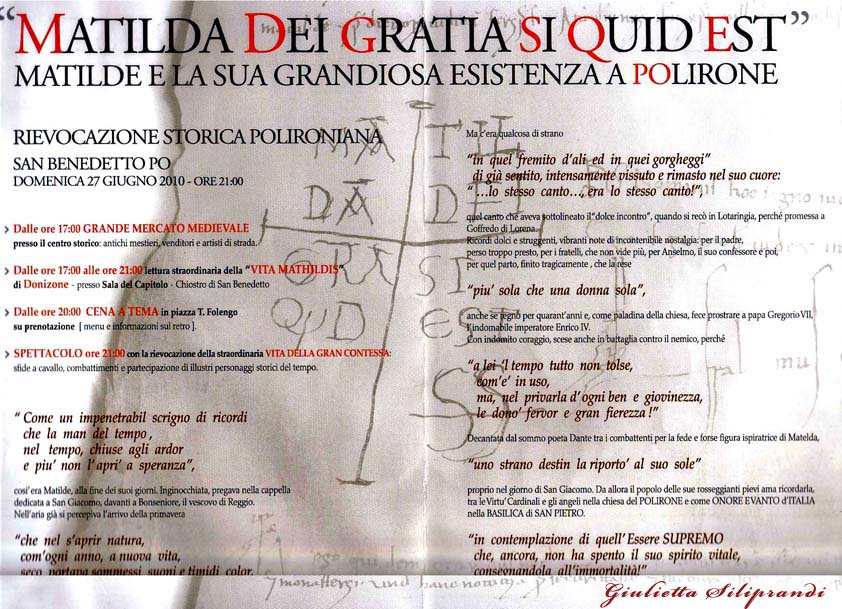 “MATILDA DEI GRATIA SI QUID EST”
MATILDE E LA SUA GRANDIOSA ESISTENZA A POLIRONE
RIEVOCAZIONE STORICA POLIRONIANA
SAN BENEDETTO PO
DOMENICA 27 GIUGNO 2010 - ORE 21:00
› Dalle ore 17:00 GRANDE MERCATO MEDIEVALE
presso il centro storico: antichi mestieri, venditori e artisti di strada.
› Dalle ore 17:00 alle ore 21:00 lettura straordinaria della “VITA MATHILDIS”
di Donizone - presso Sala del Capitolo - Chiostro di San Benedetto
› Dalle ore 20:00 CENA A TEMA in piazza T. Folengo
su prenotazione [ menu e informazioni sul retro ].
› SPETTACOLO ore 21:00 con la rievocazione della straordinaria VITA DELLA GRAN CONTESSA:
sfide a cavallo, combattimenti e partecipazione di illustri personaggi storici del tempo.
“ Come un impenetrabil scrigno di ricordi
che la man del tempo ,
nel tempo, chiuse agli ardor
e piu’ non l’apri’ a speranza”,
cosi’era Matilde, alla fine dei suoi giorni. Inginocchiata, pregava nella cappella
dedicata a San Giacomo, davanti a Bonseniore, il vescovo di Reggio.
Nell’aria già si percepiva l’arrivo della primavera
“che nel s’aprir natura,
com’ogni anno, a nuova vita,
seco portava sommessi suoni e timidi color.
Ma c’era qualcosa di strano
“in quel fremito d’ali ed in quei gorgheggi”
di già sentito, intensamente vissuto e rimasto nel suo cuore:
“ …lo stesso canto…, era lo stesso canto!”,
quel canto che aveva sottolineato il “dolce incontro”, quando si recò in Lotaringia, perché promessa a
Goffredo di Lorena.
Ricordi dolci e struggenti, vibranti note di incontenibile nostalgia: per il padre,
perso troppo presto, per i fratelli, che non vide più, per Anselmo, il suo confessore e poi,
per quel parto, finito tragicamente , che la rese
“piu’ sola che una donna sola”,
anche se regnò per quarant’anni e, come paladina della chiesa, fece prostrare a papa Gregorio VII,
l’indomabile imperatore Enrico IV.
Con indomito coraggio, scese anche in battaglia contro il nemico, perché
“a lei ‘l tempo tutto non tolse,
com’e’ in uso,
ma, nel privarla d’ogni ben e giovinezza,
le dono’ fervor e gran fierezza !”
Decantata dal sommo poeta Dante tra i combattenti per la fede e forse figura ispiratrice di Matelda,
“uno strano destin la riporto’ al suo sole”
proprio nel giorno di San Giacomo. Da allora il popolo delle sue rosseggianti pievi ama ricordarla,
tra le Virtu’ Cardinali e gli angeli nella chiesa del POLIRONE e come ONORE E VANTO d’ITALIA
nella BASILICA di SAN PIETRO.
“in contemplazione di quell’Essere SUPREMO
che, ancora, non ha spento il suo spirito vitale,
consegnandola all’immortalità!”
Giulietta Siliprandi
MA TIL
DA DEI
GRA SI
QUD EST